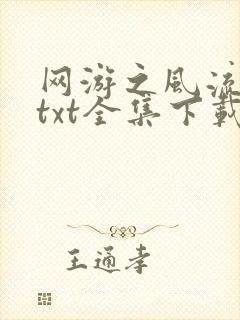 网游之风流
txt全集下载
王通孝